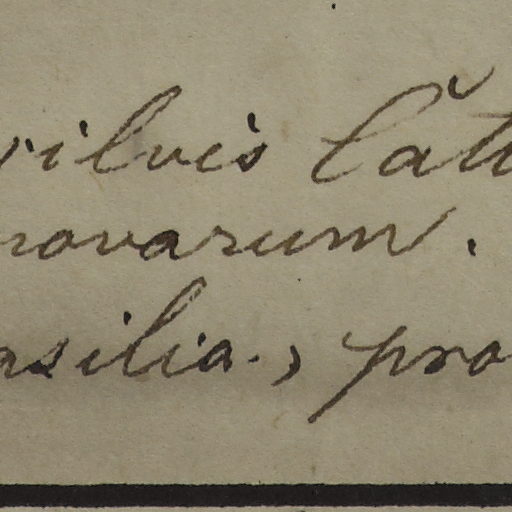 silvis Catu
novarum.
asilia., pro